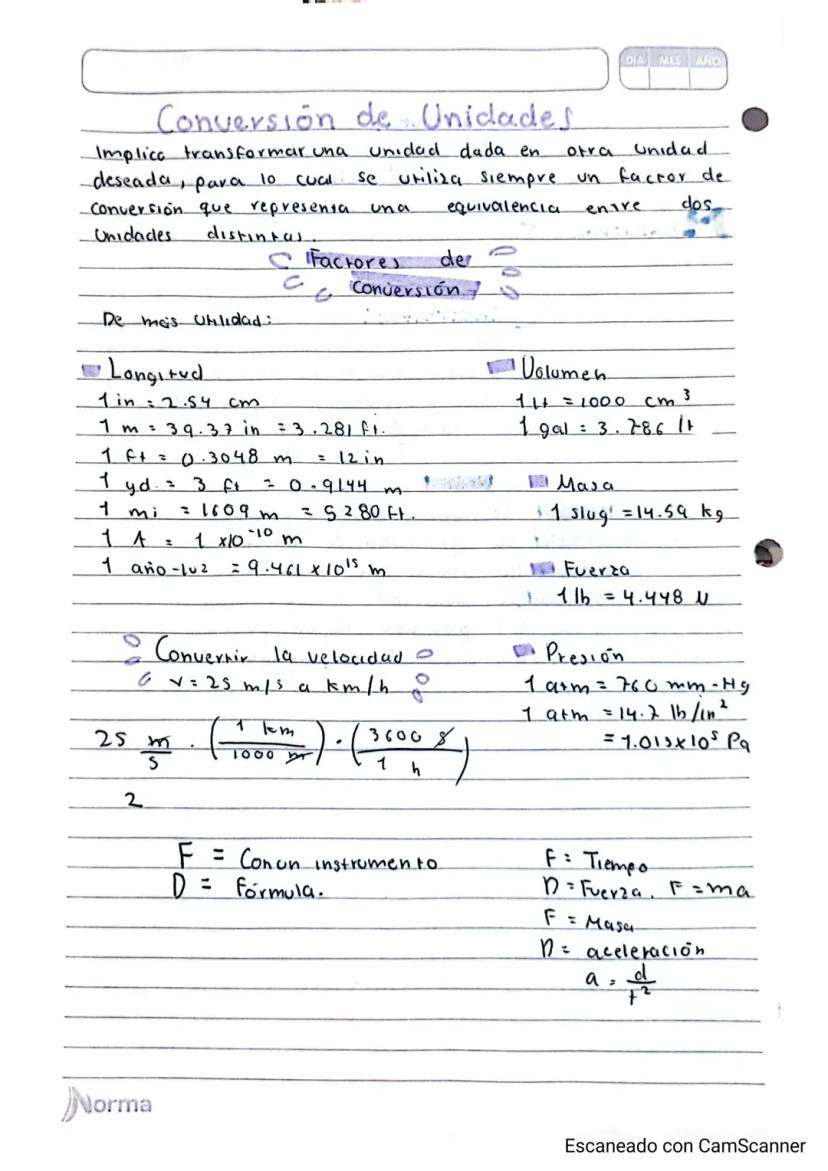 DIA MES AÑO
Conversión de Unidades
Implica transformar una unidad dada en otra unidad
deseada, para lo cual se utiliza siempre un factor de
conversión que representa una equivalencia entre dos
Unidades distintas.
Factores de
Conversión
De más Utilidad:
Longitud
1 in = 2.54 cm
1 m = 39.37 in = 3.281 ft.
1 ft = 0.3048 m = 12 in
1 yd. = 3 ft = 0.9144 m
1 mi = 1609 m = 5280 ft.
1 A = 1 x10⁻¹⁰ m
1 año-luz = 9.461 x 10¹⁵ m
Volumen
1 Lt = 1000 cm³
1 gal = 3.786 lt
Masa
1 slug = 14.59 kg
Fuerza
1 lb = 4.448 N
Convertir la velocidad
v = 25 m/s a km/h
25 m/s · (1 km / 1000 m) · (3600 s / 1 h)
2
Presión
1 atm = 760 mm-Hg
1 atm = 14.7 lb/in²
= 1.013x10⁵ Pa
F = Con un instrumento
D = Fórmula.
F = Tiempo
D = Fuerza. F = ma
F = Masa
D = aceleración
a = d/t²
Norma
Escaneado con CamScanner